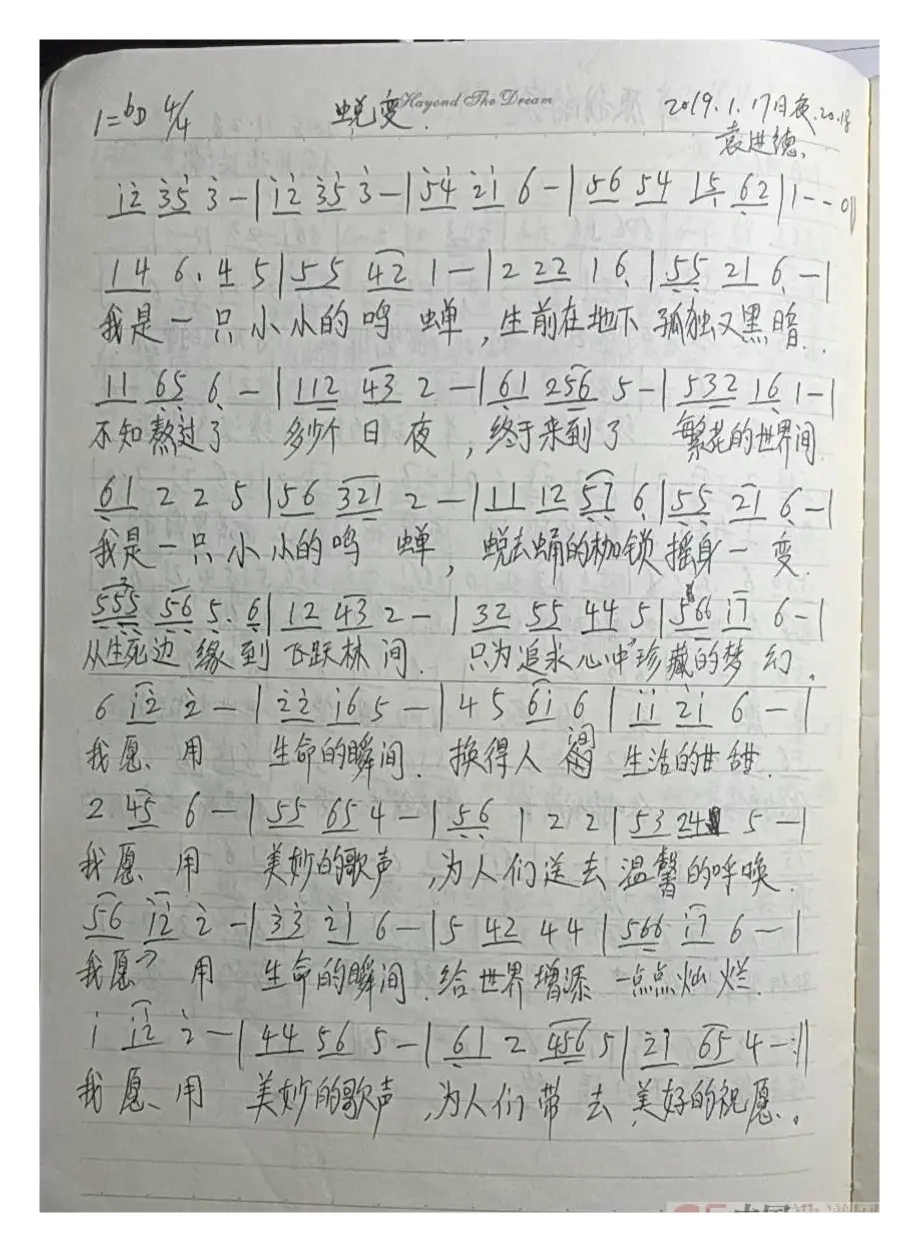 Hayond The Dream
1=bD 4/4 蜕变. 2019.1.17日夜.20.18
袁进德.
i2̇ 3̇5̇ 3̇ - | i2̇ 3̇5̇ 3̇ - | 5̇4̇ 2̇i 6 - | 56 54 15̣ 6̣2 | 1 - - 0 ‖
14 6. 4 5 | 55 42 1 - | 2 22 1 6̣ | 5̣5̣ 21 6̣ - |
我是一只小小的鸣蝉,生前在地下孤独又黑暗.
11 6̣5̣ 6̣ - | 112 43 2 - | 6̣1 256 5 - | 532 16̣ 1 - |
不知熬过了 多少个日夜,终于来到了 繁花的世界间.
6̣1 2 2 5 | 56 321 2 - | 11 12 5̣7̣ 6̣ | 5̣5̣ 21 6̣ - |
我是一只小小的鸣蝉,蜕去蛹的枷锁摇身一变.
5̣5̣5̣ 5̣6̣ 5̣. 6̣ | 12 43 2 - | 32 55 44 5 | 566 i7 6 - |
从生死边缘到飞跃林间.只为追求心中珍藏的梦幻.
6 i2̇ 2̇ - | 2̇2̇ i6 5 - | 4 5 6i 6 | ii 2̇i 6 - |
我愿、用 生命的瞬间.换得人间 生活的甘甜.
2 45 6 - | 55 65 4 - | 5̣6̣ 1 2 2 | 53 24 5 - |
我愿、用 美妙的歌声,为人们送去温馨的呼唤.
56 i2̇ 2̇ - | 3̇3̇ 2̇i 6 - | 5 42 4 4 | 566 i7 6 - |
我愿、用 生命的瞬间.给世界增添 一点点灿烂.
i i2̇ 2̇ - | 44 56 5 - | 6̣1 2 456 5 | 2̇i 65 4 - :‖
我愿、用 美妙的歌声,为人们带去美好的祝愿.